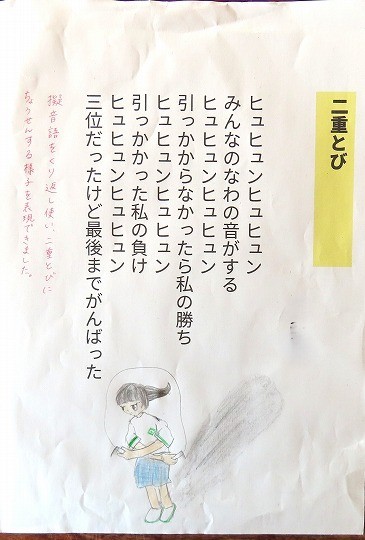 二重とび
ヒュヒュンヒュヒュン
みんなのなわの音がする
ヒュヒュンヒュヒュン
引っかからなかったら私の勝ち
ヒュヒュンヒュヒュン
引っかかった私の負け
ヒュヒュンヒュヒュン
三位だったけど最後までがんばった
擬音語をくり返し使い、二重とびに
ちょうせんする様子を表現できました。